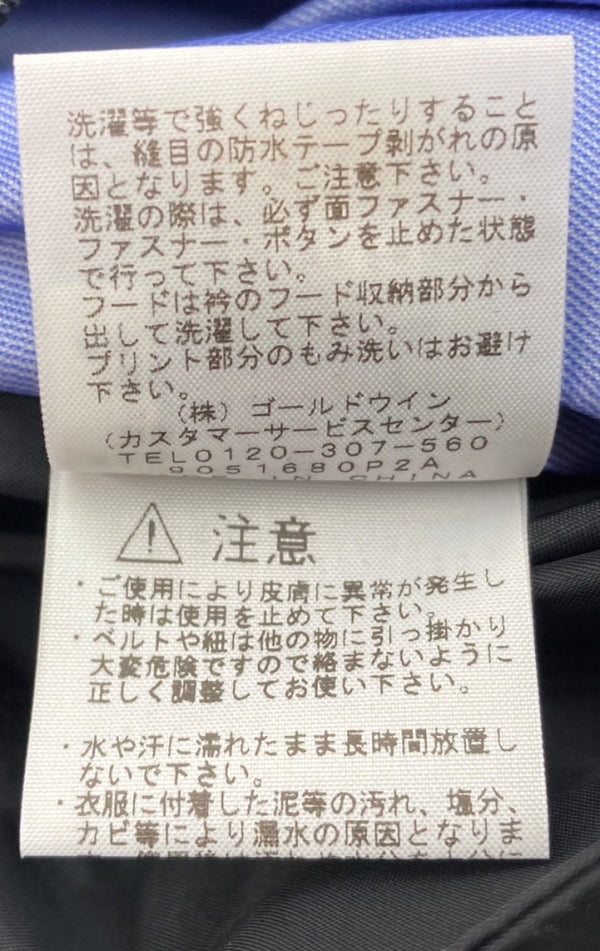 洗濯等で強くねじったりすること
は、縫目の防水テープ剥がれの原
因となります。ご注意下さい。
洗濯の際は、必ず面ファスナー・
ファスナー・ボタンを止めた状態
で行って下さい。
フードは衿のフード収納部分から
出して洗濯して下さい。
プリント部分のもみ洗いはお避け
下さい。
(株)ゴールドウイン
(カスタマーサービスセンター)
TEL0120-307-560
9051680P2A
IN CHINA
注意
・ご使用により皮膚に異常が発生し
た時は使用を止めて下さい。
・ベルトや紐は他の物に引っ掛かり
大変危険ですので絡まないように
正しく調整してお使い下さい。
・水や汗に濡れたまま長時間放置し
ないで下さい。
・衣服に付着した泥等の汚れ、塩分、
カビ等により漏水の原因となりま